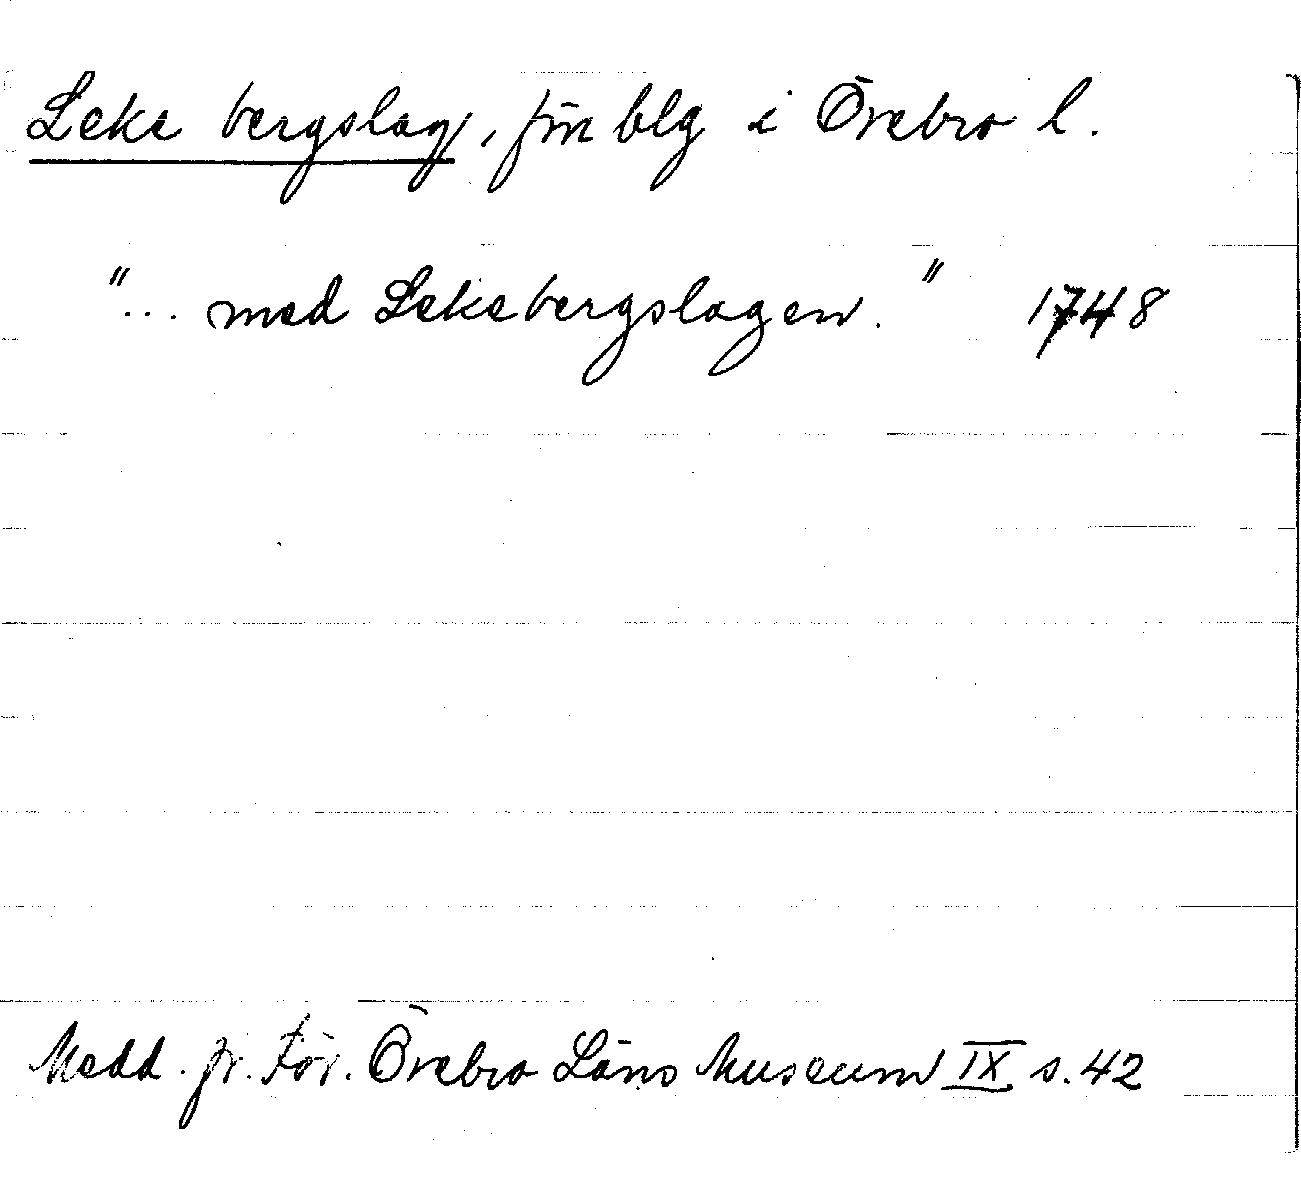 Leke bergslag, förr blg i Örebro l.
"... med Lekebergslagen." 1748
Medd. fr. För. Örebro Läns Museum IX s. 42